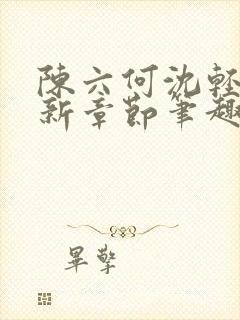 陳六何沈輕
新章節筆趣
畢擎